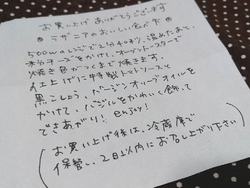 お買い上げありがとうございます
ラザニアのおいしい食べ方
500wのレンジで2分チン。温めたあと、
粉チーズをかけて、オーブントースターで
焼き色がつくまで焼きます。
仕上げに特製トマトソースと
黒こしょう、バージンオリーブオイルを
かけて、バジルをかわいく飾って
できあがり! enjoy!
(お買い上げ後は、冷蔵庫で
保管し、2日以内にお召し上がり下さい)